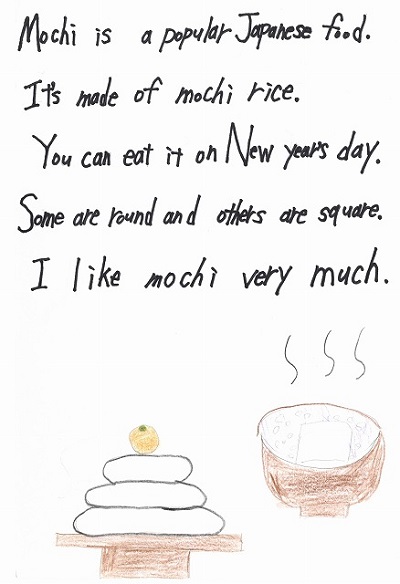 Mochi is a popular Japanese food.
It's made of mochi rice.
You can eat it on New year's day.
Some are round and others are square.
I like mochi very much.